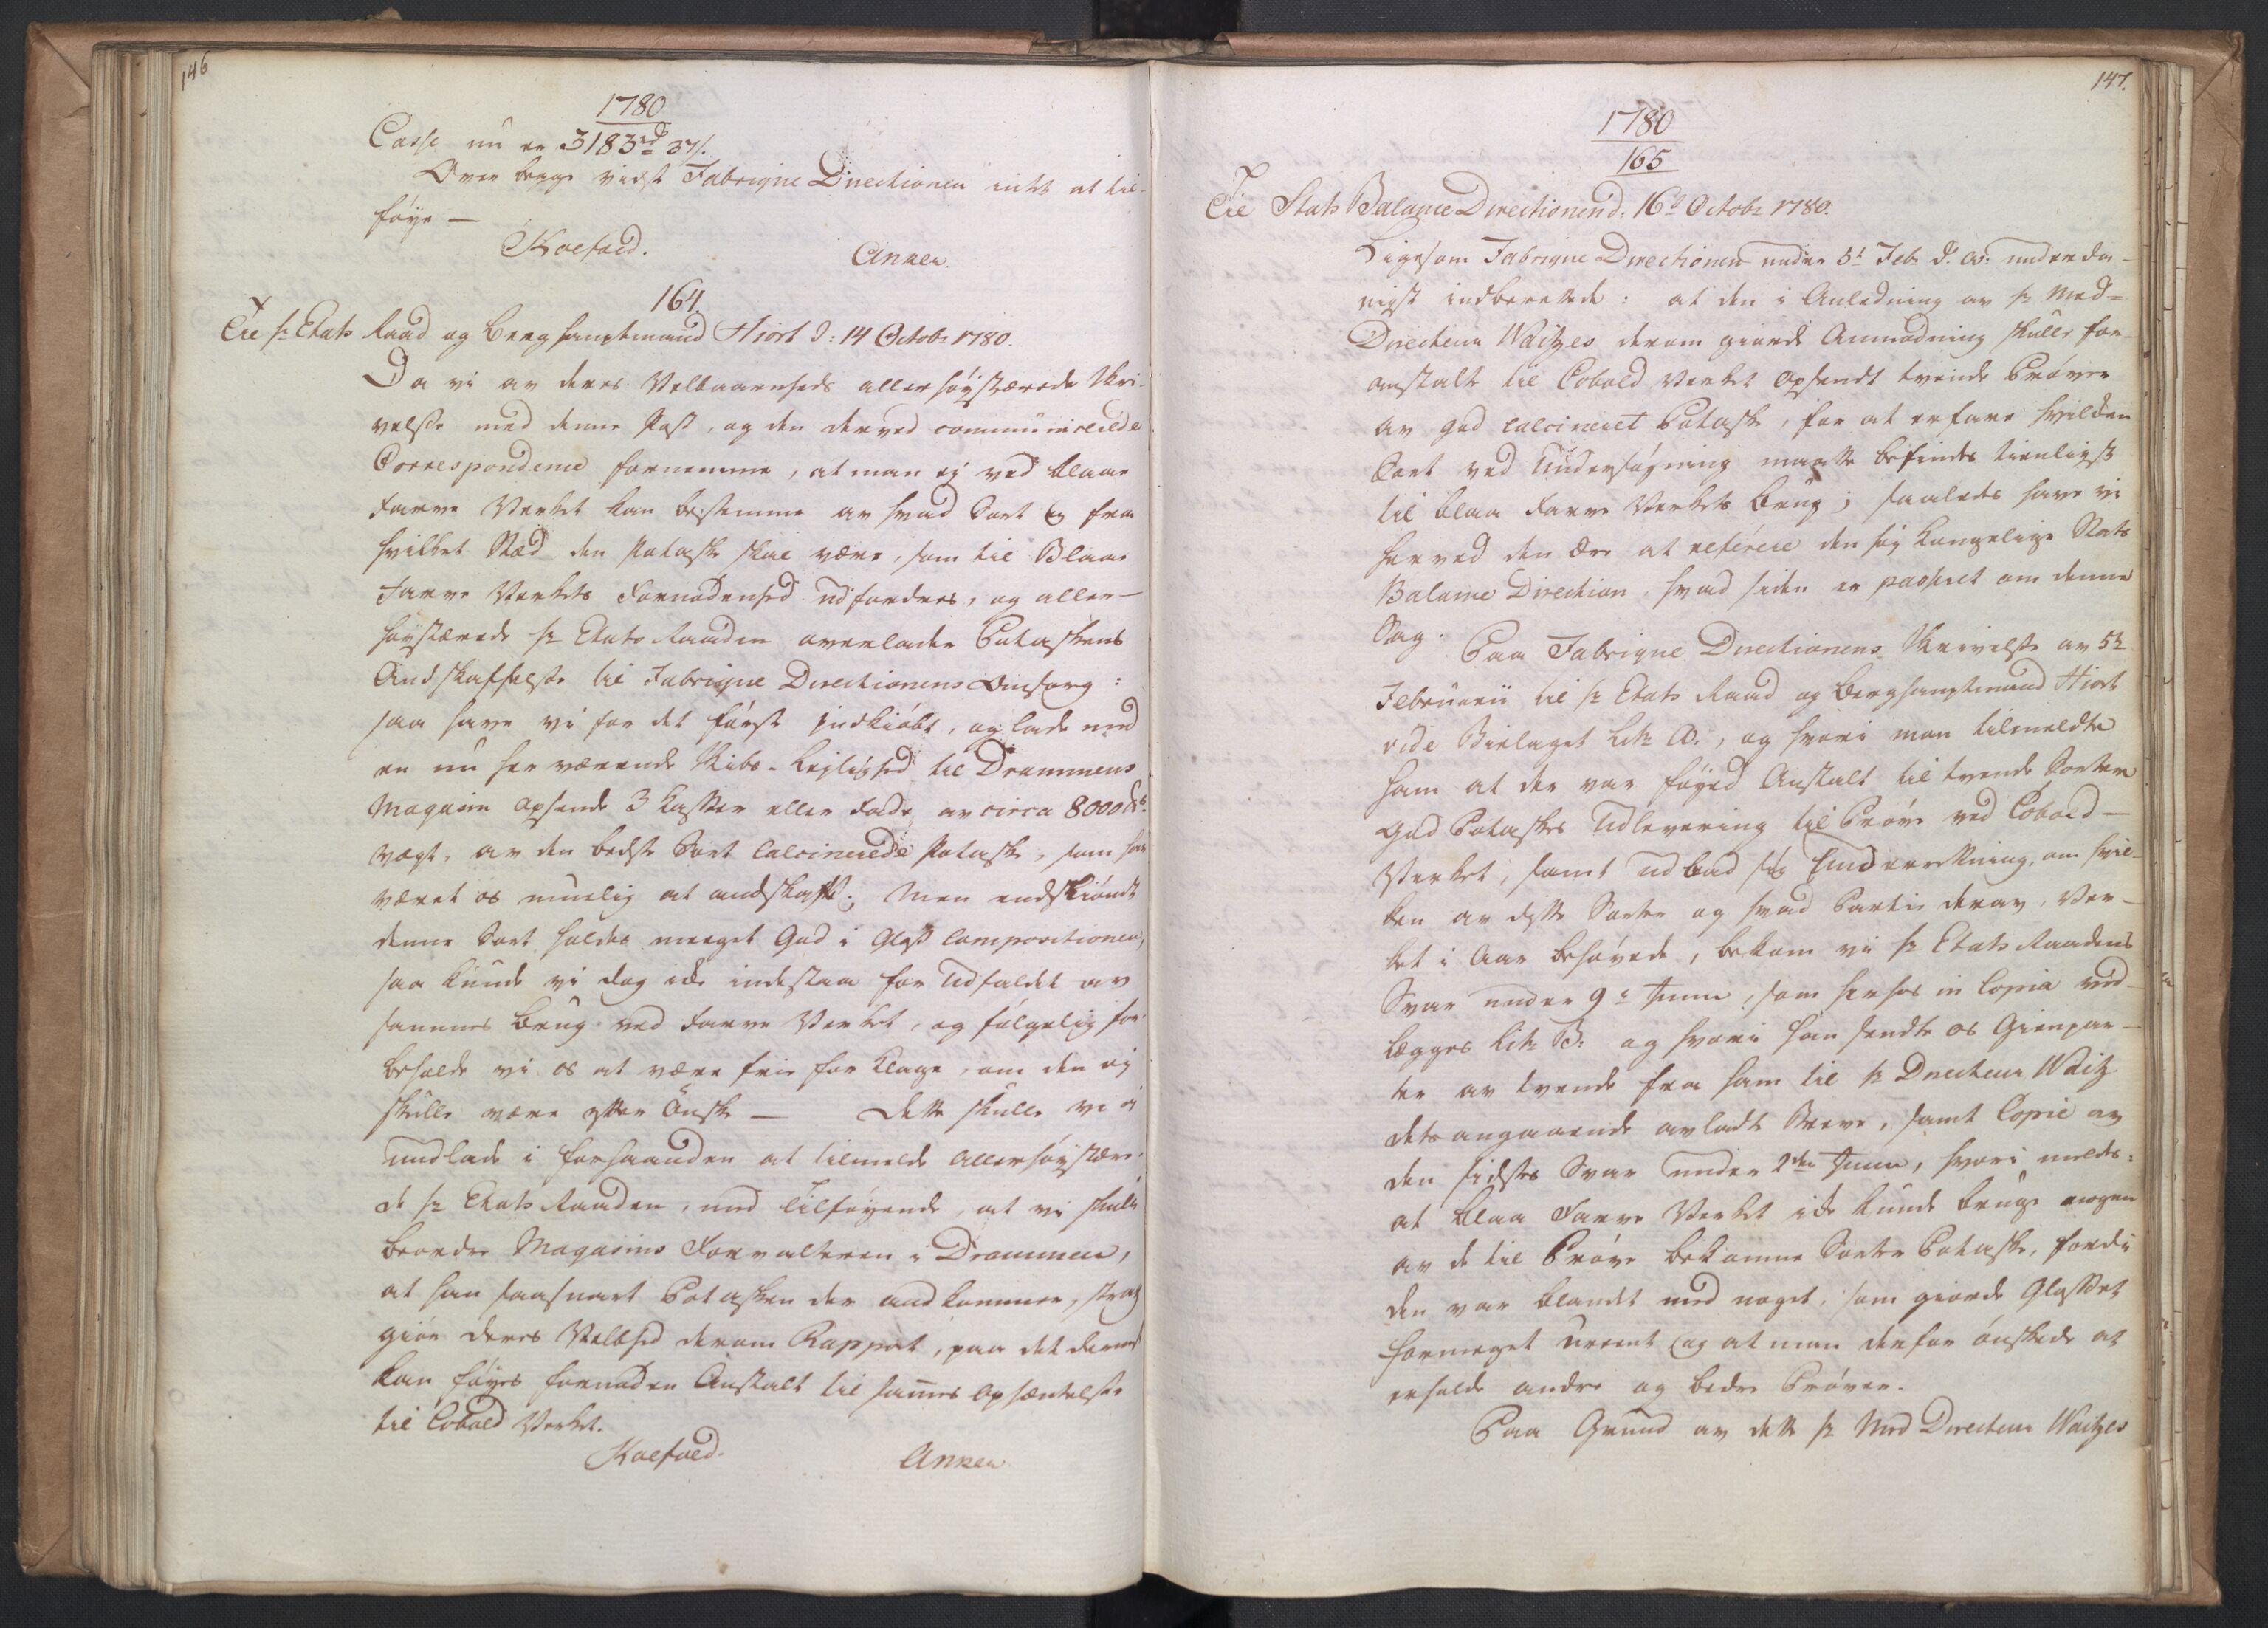 146
1780
Casse nu er 3183rd 37s.
Over begge vidste Fabrique Directionen intet at til-
føye —
Koefoed. Anker.
164.
Til Hr Etats Raad og Berghauptmand Hiort d: 14 Octobr 1780.
Da vi av deres Velbaarenheds allerhøystærede Skri-
velse med denne Post, og den derved communicerede
Correspondence fornemme, at man ej ved Blaae
Farve Verket kan bestemme av hvad Sort og fra
hvilket Stæd den Potaske skal være, som til Blaae
Farve Verkets Fornødenhed udfordres, og aller-
høystærede Hr Etats Raaden overlader Potaskens
Andskaffelse til Fabrique Directionens Omsorg:
saa have vi for det første indkiøbt, og lade med
en nu her værende Skibs-Lejlighed til Drammens
Magasin opsende 3 Kasser eller Fade av circa 8000 lb
Vægt, av den bedste Sort Calcinerede Potaske, som har
været os muelig at andskaffe; Men endskiøndt
denne Sort holdes meeget God i Glas Compositionen,
saa kunde vi dog icke indestaa for Udfaldet av
sammes Brug ved Farve Verket, og følgelig for-
beholde vi os at være frie for Klage, om den ej
skulle være efter Ønske — Dette skulle vi ej
undlade i forhaanden at tilmelde allerhøystære-
de Hr Etats Raaden, med Tilføyende, at vi skulle
beordre Magasins Forvalteren i Drammen,
at han saasnart Potasken der andkommer, strax
giør deres Velbhed derom Rapport, paa det derved
kan føyes fornøden Anstalt til sammes Opsændelse
til Cobold Verket.
Koefoed. Anker
147.
1780
165
Til Stats Balance Directionen d: 16d Octobr 1780.
Ligesom Fabrique Directionen under 5t Febr d. A. underda-
nigst indberettede: at den i Anledning av Hr Med-
Directeur Waitzes derom giorde Anmodning skulle for-
anstalte til Cobold Verket opsendt tvende Prøver
av god calcineret Potaske, for at erfare hvilken
Sort ved Undersøgning maatte befindes tienligst
til blaa Farve Verkets Brug; saaledes have vi
herved den Ære at referere den høj Kongelige Stats
Balance Direction, hvad siden er passeret om denne
Sag.
Paa Fabrique Directionens Skrivelse av 5te
Februarii til Hr Etats Raad og Berghauptmand Hiort
vide Bielaget Litr A., og hvori man tilmeldte
ham at der var føyed Anstalt til tvende Sorter
God Potaskes Udlevering til Prøve ved Cobold-
Verket, samt udbad sig Underretning, om hvil-
ken av disse Sorter og hvad Partie derav, Ver-
ket i Aar behøvede, bekom vi Hr Etats Raadens
Svar under 9e Junii, som herhos in Copia ved-
lægges Litr B: og hvori han sendte os Gienpar-
ter av tvende fra ham til Hr Directeur Waitz
dets angaaende avladte Breve, samt Copie av
den sidstes Svar under 2den Junii, hvori meldes:
at Blaa Farve Verket icke kunde bruge nogen
av de til Prøve bekomne Sorter Potaske, fordi
den var blandet med noget, som giorde Glasset
formeget ureent og at man derfor ønskede at
erholde andre og bedre Prøver.
Paa Grund av dette Hr Med Directeur Waitzes